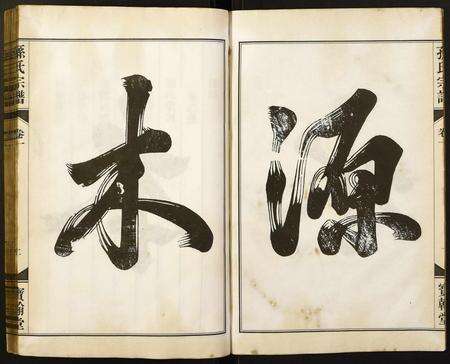 孫氏宗譜
卷一
寶翰堂
源
木
孫氏宗譜
卷一
寶翰堂